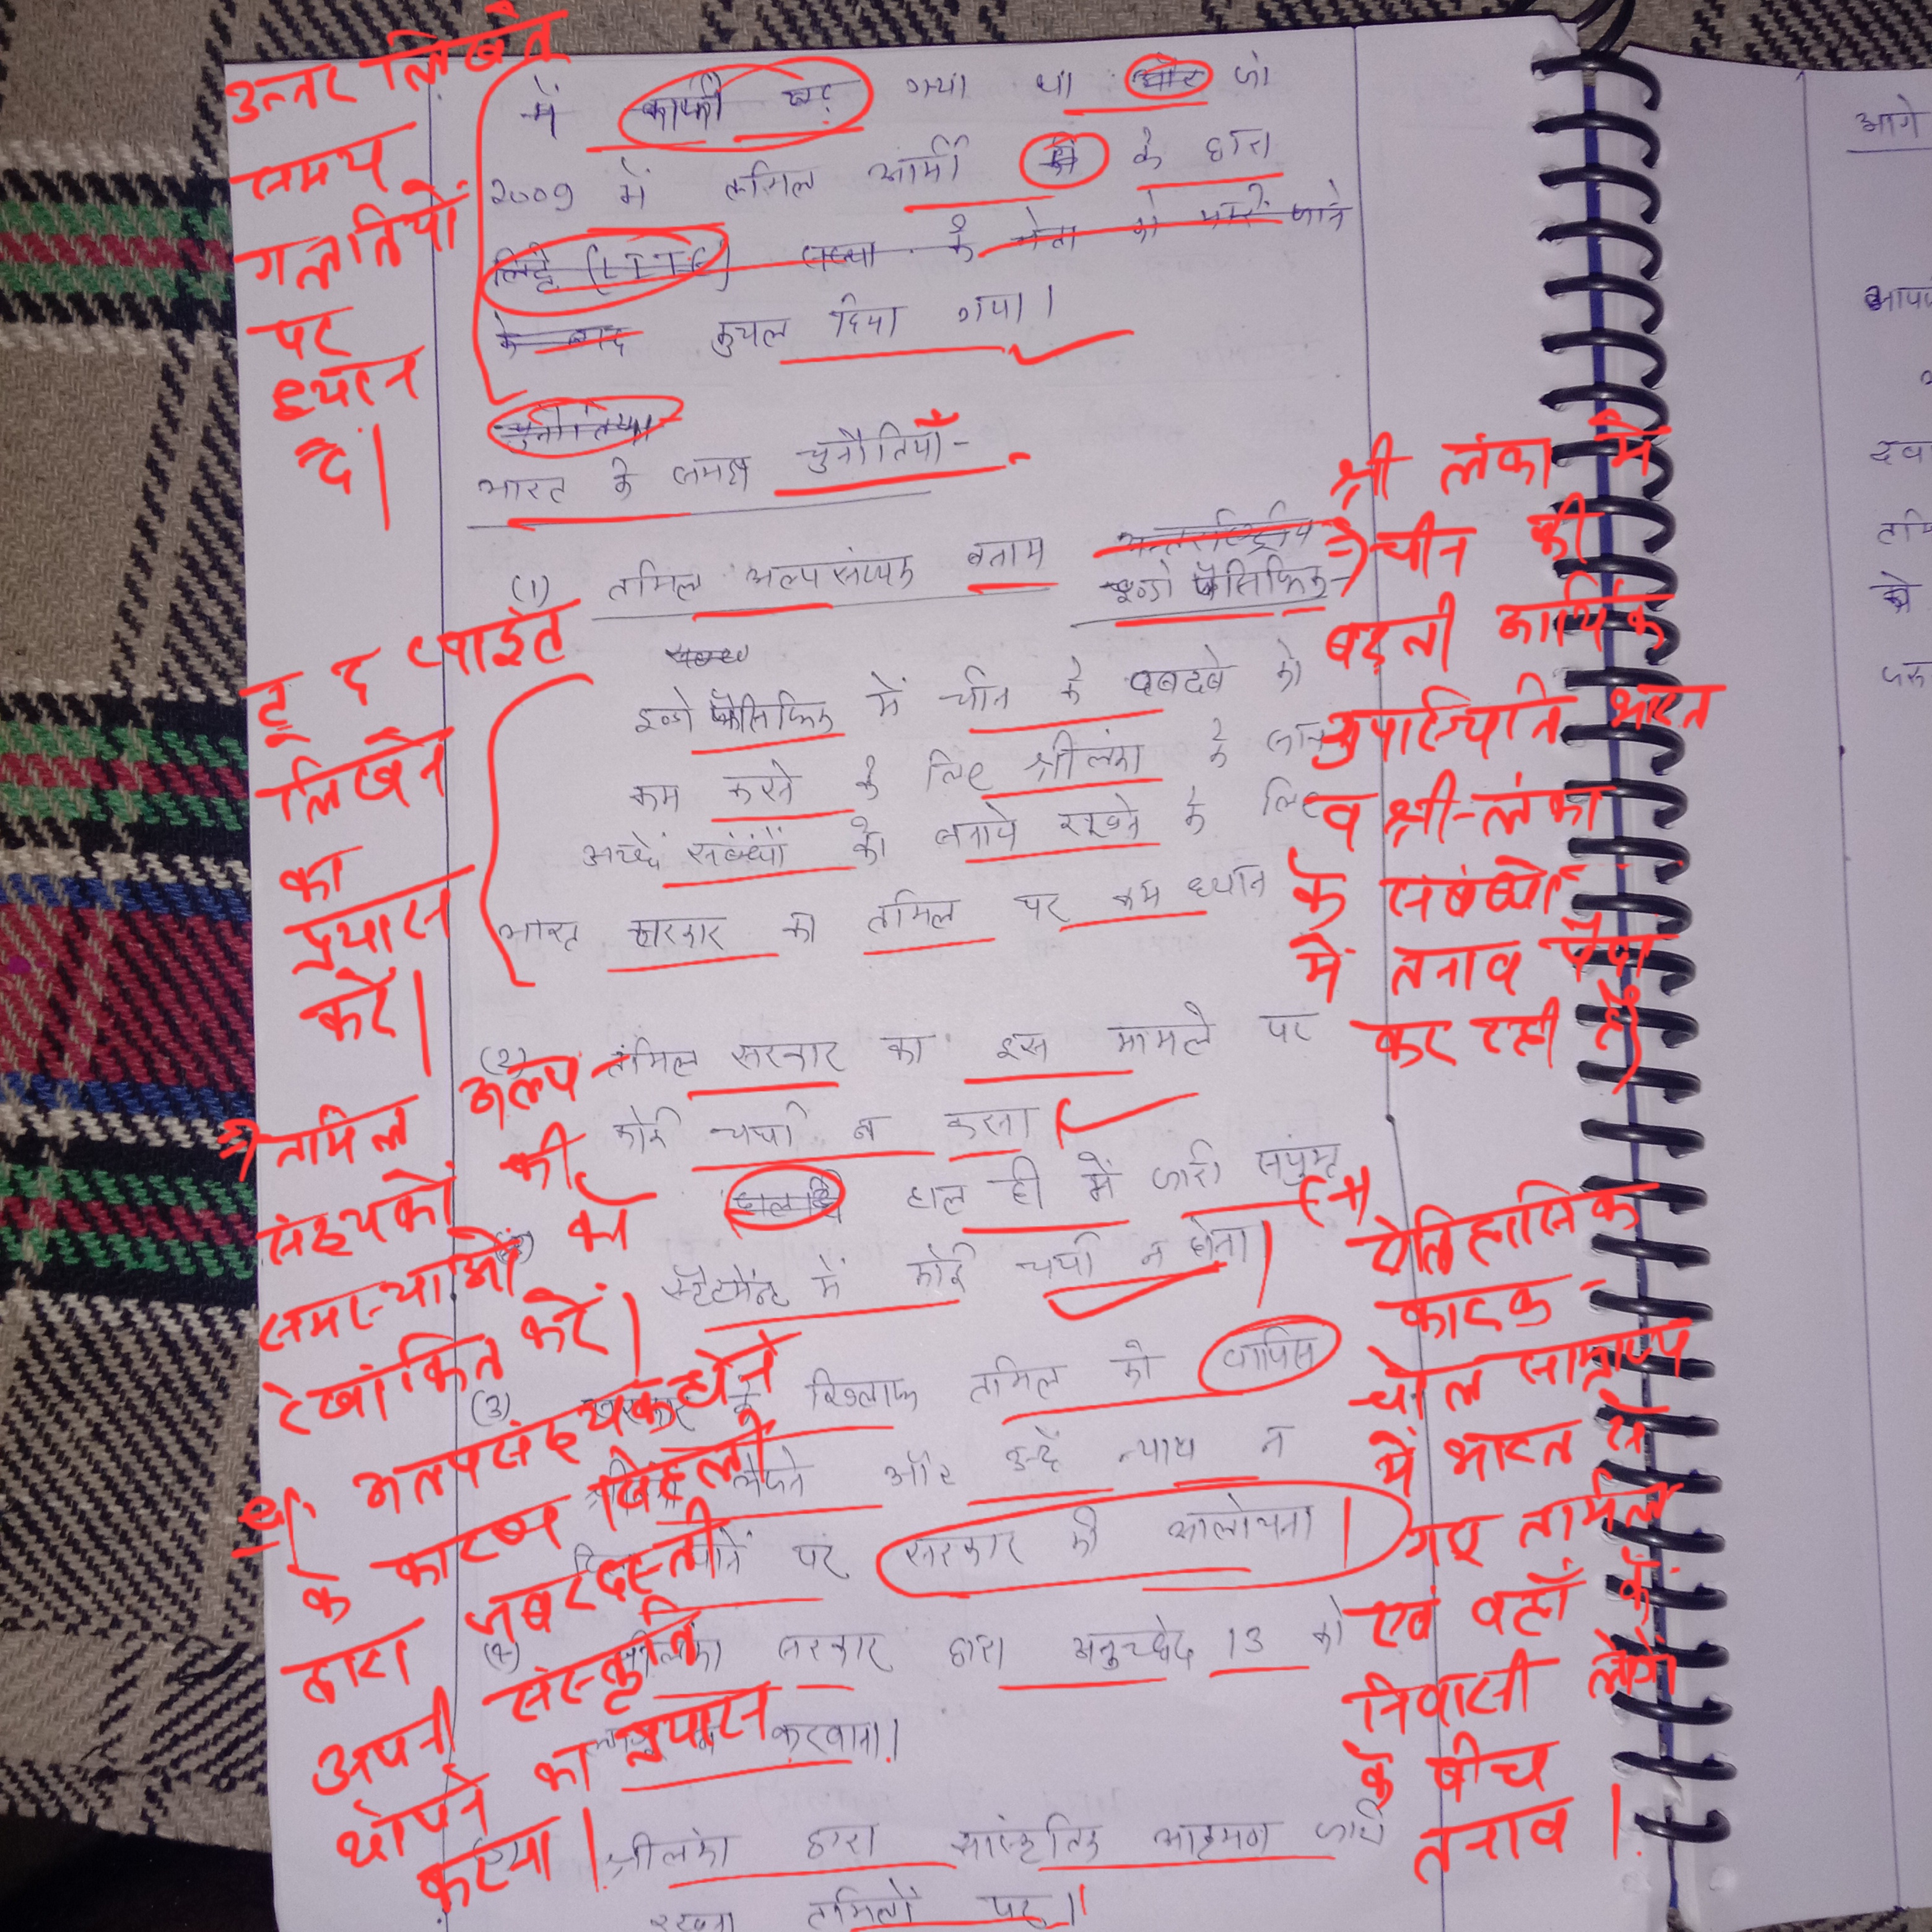 में काफी बढ़ गया था और जो
2009 में तमिल आर्मी के द्वारा
लिट्टे (LTTE) के नेता को मारे जाने
के बाद कुचल दिया गया।
चुनौतियां
भारत के समक्ष चुनौतियाँ-
(1) तमिल अल्पसंख्यक बनाम
इण्डो पैसिफिक-
इण्डो पैसिफिक में चीन के दबदबे को
कम करने के लिए श्रीलंका के
अच्छे संबंधों को बनाये रखने के लिए
भारत सरकार का तमिल पर कम ध्यान
(2) तमिल सरकार का इस मामले पर
कोई चर्चा न करना।
हाल ही में जारी संयुक्त
स्टेटमेंन्ट में कोई चर्चा न होना।
(3) सरकार के खिलाफ तमिल को वापिस
भेजने और उन्हें न्याय न
पर सरकार की आलोचना।
(4) श्रीलंका सरकार द्वारा अनुच्छेद 13 को
करवाना।
श्रीलंका द्वारा सांस्कृतिक आक्रमण जारी
रखना तमिलों पर।
उत्तर लिखते
समय
गलतियों
पर
ध्यान
दें।
टू द प्वाइंट
लिखने
का
प्रयास
करें।
=> तामिल अल्प
संख्यकों की
समस्याओं को
रेखांकित करें।
eg. अल्पसंख्यक होने
के कारण सिंहली
द्वारा जबरदस्ती
अपनी संस्कृति
थोपने का प्रयास
करना।
श्री लंका में
=> चीन की
बढ़ती आर्थिक
उपस्थिति भारत
व श्री-लंका
के संबंधों
में तनाव पैदा
कर रही है।
(+)
ऐतिहासिक
कारक -
चोल साम्राज्य
में भारत से
गए तामिल
एवं वहाँ के
निवासी लोगों
के बीच
तनाव।
आगे